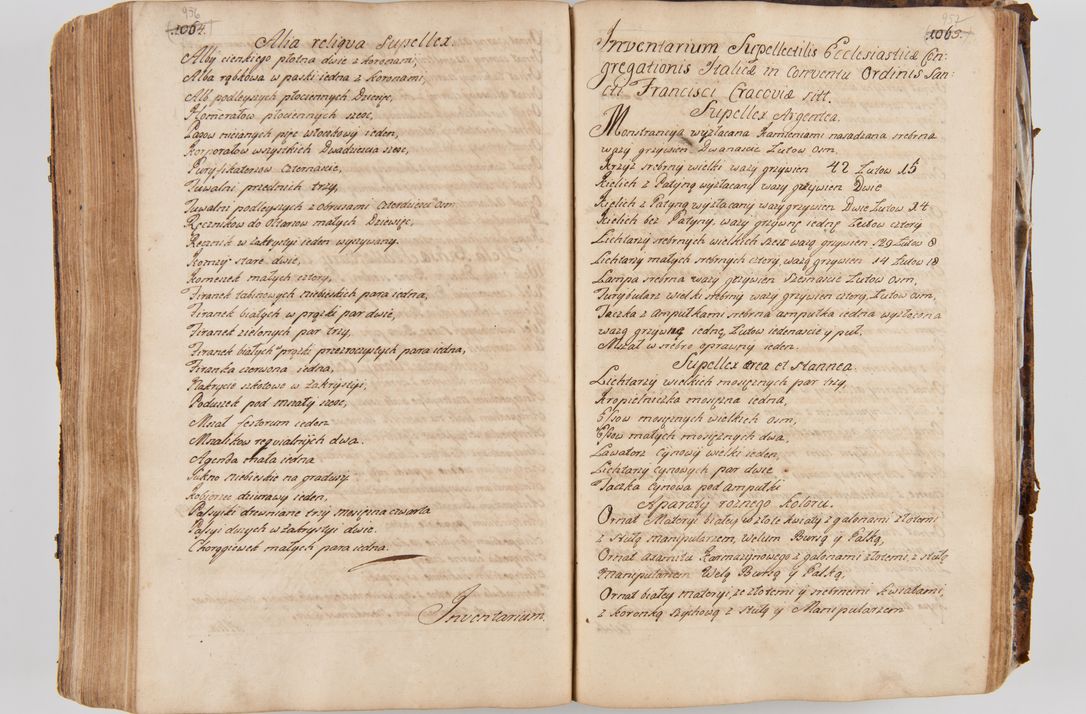 956
1064.
Alia reliqva Supellex
Alby cienkiego płotna dwie z koronami,
Alba rąbkowa w paski iedna z koronami,
Alb podleyszych płociennych Dziesięc,
Humerałow płociennych szesc,
Pasow nicianych pięc włoczkowy ieden,
Korporałow wszystkich Dwadziescia szesc,
Puryfikaterzow Czternascie,
Tuwalni przednich trzy,
Tuwalni podleyszych z obrusami Czterdziesci osm
Ręcznikow do ołtarzow małych Dziewięc,
Ręcznik w zakrystyi ieden wyszywany.
Komży stare dwie,
Komeszek małych cztery,
Firanek tabinowych niebieskich para iedna,
Firanek białych w prążki par dwie,
Firanek zielonych par trzy,
Firanek białych prążki przezroczystych para iedna,
Firanka czerwona iedna,
Nakrycie szkotowe w Zakrystyi,
Poduszek pod mszały szesc,
Mszał festorum ieden
Mszalikow reqvialnych dwa.
Agenda mała iedna
Sukno niebieskie na gradusy
Kobierzec dziurawy ieden,
Passyiki drewniane trzy mosięzna czwarta
Passyi duzych w zakrystyi dwie.
Chorągiewek małych para iedna.
Inventarium
957
1065.
Inventarium Supellectilis Ecclesiasticæ Con-
gregationis Italicæ in Conventu Ordinis San-
cti Francisci Cracoviæ sitt.
Supellex Argentea.
Monstrancya wyzłacana Kamieniami nasadzana srebrna
wazy grzywien Dwanascie Łutow Osm,
Krzyz srebrny wielki wazy grzywien 42 Łutow 15
Kielich z Patyną wyzłacany wazy grzywien Dwie
Kielich z Patyną wyzłacany wazy grzywien Dwie Łutow 14
Kielich bez Patyny, wazy grzywnę iednę Łutow cztery
Lichtarzy srebrnych wielkich szesc wazą grzywien 129 Łutow 8
Lichtarzy małych srebrnych cztery, wazą grzywien 14 Łutow 18
Lampa srebrna wazy grzywien Szesnascie Łutow Osm,
Turybularz wielki srebrny wazy grzywien cztery, Łutow osm,
Taczka z Ampułkami srebrna ampułka iedna wyzłocona
wazą grzywnę iednę, Łutow iedenascie y puł.
Mszał w srebro oprawny ieden.
Supellex ærea et stannea.
Lichtarzy wielkich mosięznych par trzy,
Kropielniczka mosięzna iedna,
Essow mosięznych wielkich osm,
Essow małych mosięznych dwa,
Lawaterz cynowy wielki ieden,
Lichtarzy cynowych par dwie
Taczka cynowa pod ampułki
Aparaty roznego koloru.
Ornat Materyi białey w złote kwiaty z galonami złotemi
z stułą manipularzem, Welum Bursą y Palką,
Ornat axamitu Karmazynowego z galonami złotemi, z stułą
manipularzem Welą Bursą y Palką,
Ornat białey materyi, ze złotemi y srebrnemi kwiatami,
z koronką szychową z stułą y Manipularzem